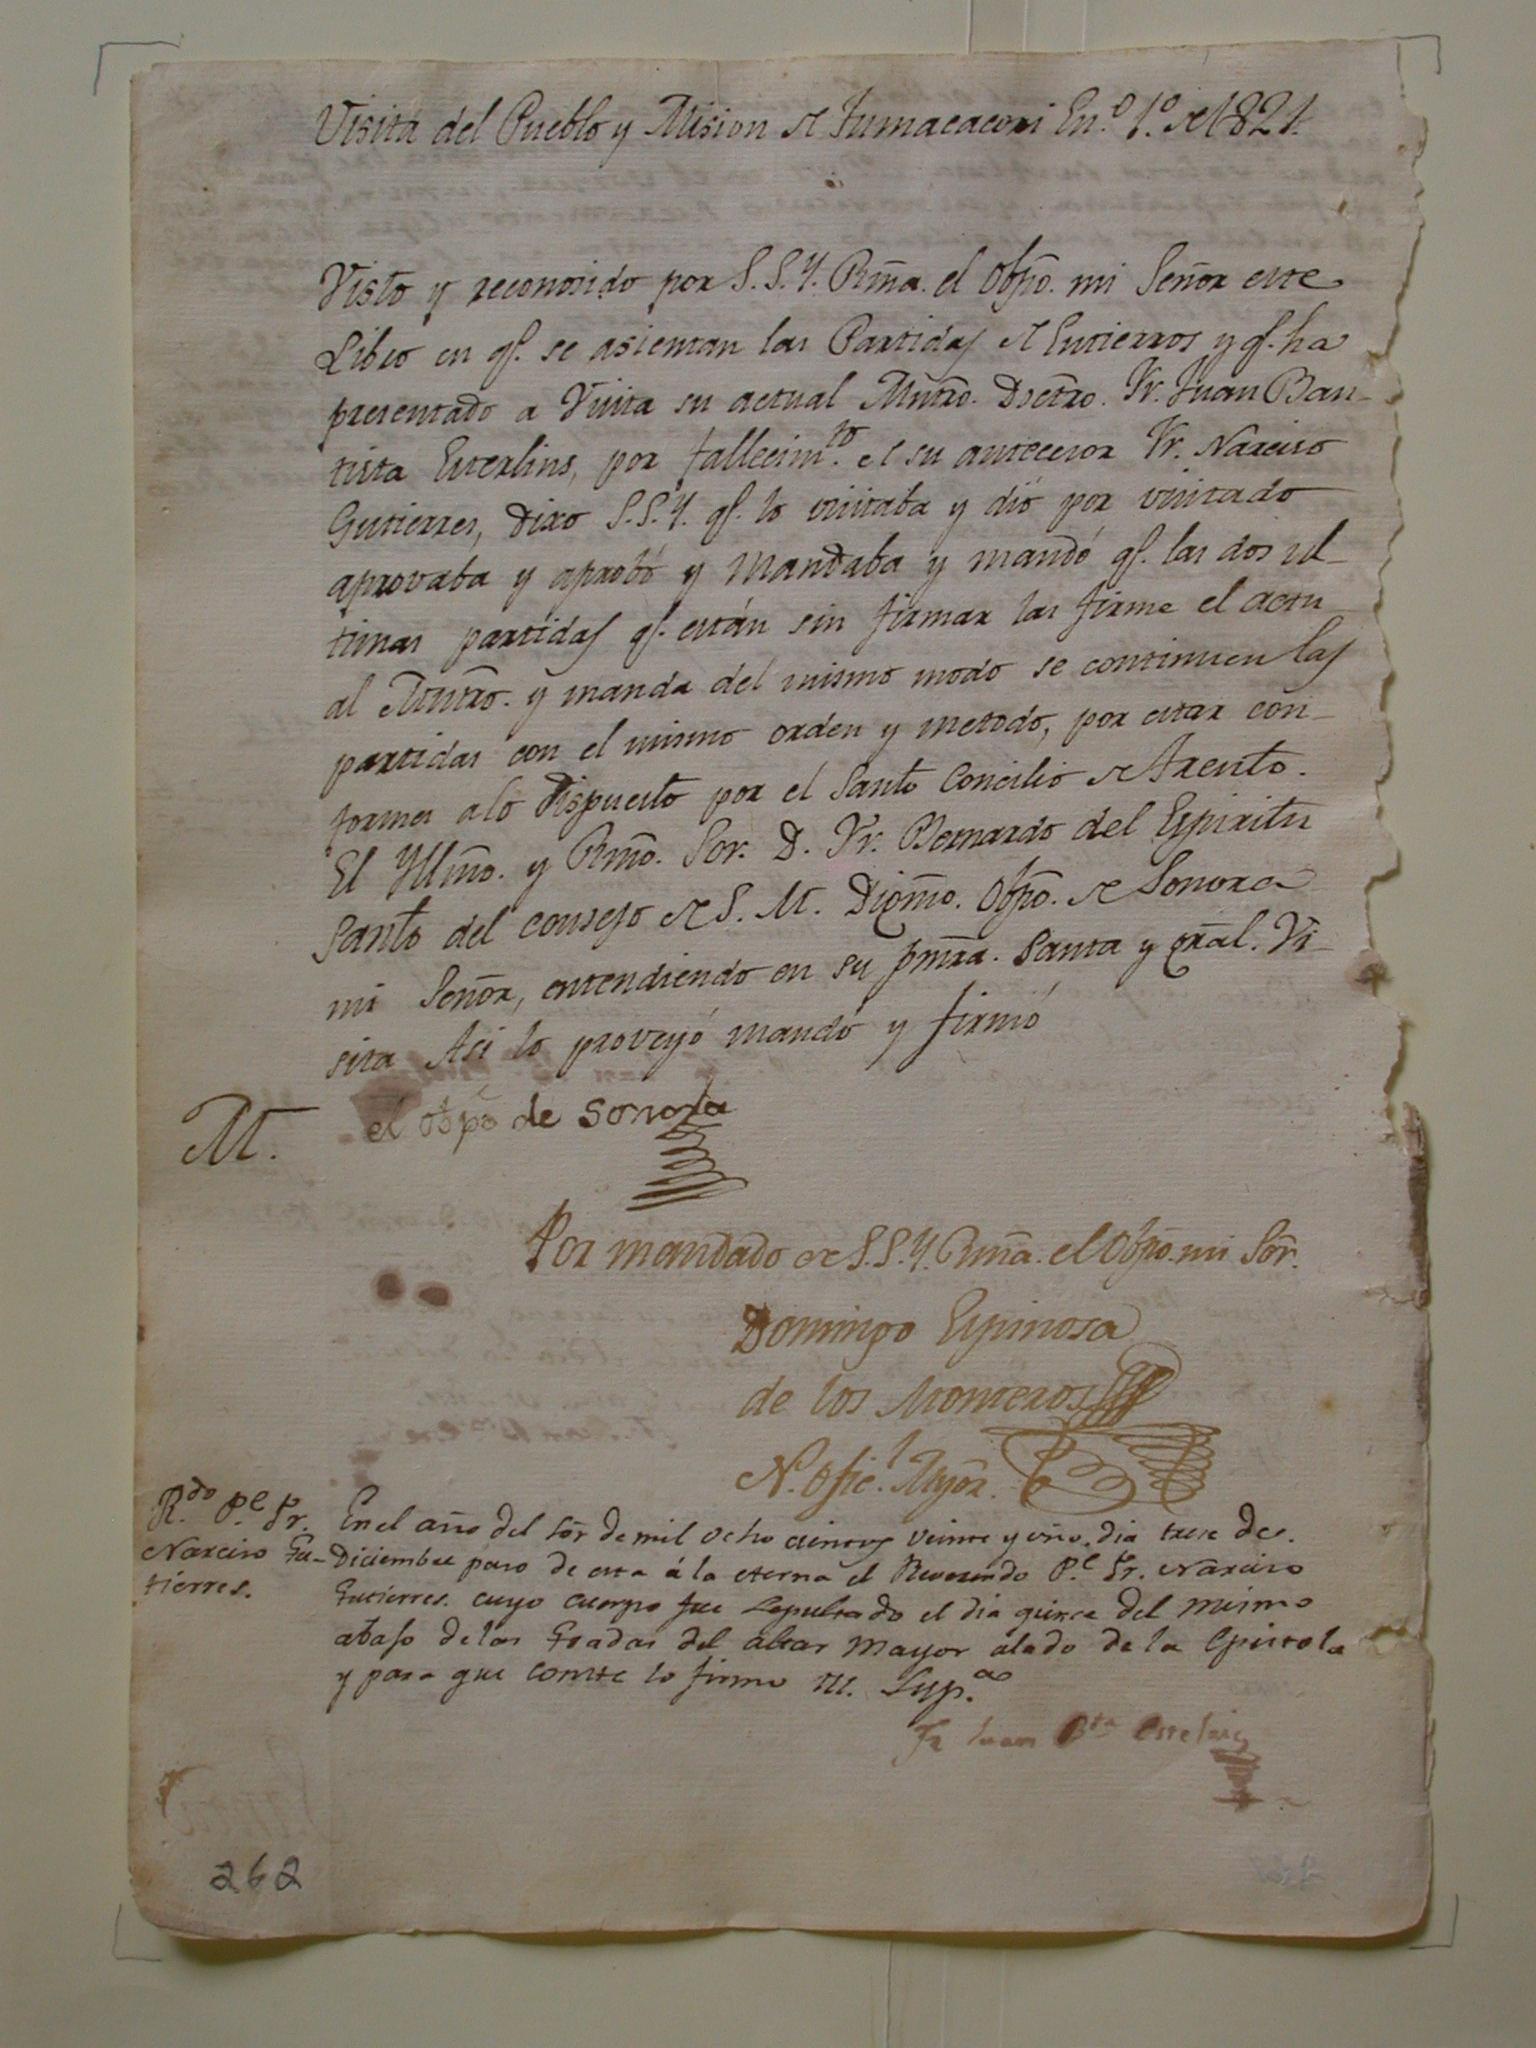 Visita del Pueblo y Mision de Tumacacori En.º 1.º de 1821.
Visto y reconosido por S.S.Y. Rm̃a. el Obp̃o. mi Señor este
Libro en qᵉ. se asientan las Partidas de Entierros y qᵉ. ha
presentado a Visita su actual Mntr̃o. Doctr̃o. Fr. Juan Bau-
tista Esterlins, por fallecim.ᵗᵒ de su antecesor Fr. Narciso
Gutierres, Dixo S.S.Y. qᵉ. lo visitaba y dió por visitado
aprovaba y aprobó y Mandaba y mandó qᵉ. las dos ul-
timas partidas qᵉ. están sin firmar las firme el actu
al Mntr̃o. y manda del mismo modo se continuen las
partidas con el mismo orden y metodo, por estar con-
formes a lo Dispuesto por el Santo Concilio de Trento.
El Yllm̃o. y Rm̃o. Sor. D. Fr. Bernardo del Espiritu
Santo del consejo de S. M. Digm̃o. Obp̃o. de Sonora
mi Señor, entendiendo en su pm̃ra. Santa y gr̃al. Vi-
sita Asi lo proveyó mandó y firmó
M. el obp̃o de Sonora
Por mandado de S.S.Y. Rm̃a. el Obp̃o. mi Sor̃.
Domingo Espinosa
de los Monteros
N. Ofic.ˡ Myõr.
R.ᵈᵒ P.ᵉ Fr.
Narciso Gu-
tierres.
En el año del Sor̃ de mil ocho cientos veinte y uño. dia trese de
Diciembre paso de esta á la eterna el Reverendo P.ᵉ Fr. Narciso
Gutierres. cuyo cuerpo fue Sepultado el dia quince del mismo
abajo de las Gradas del altar Mayor alado de la Epistola
y para que conste lo firmo
Fr Juan Bᵗᵃ Estelric
262